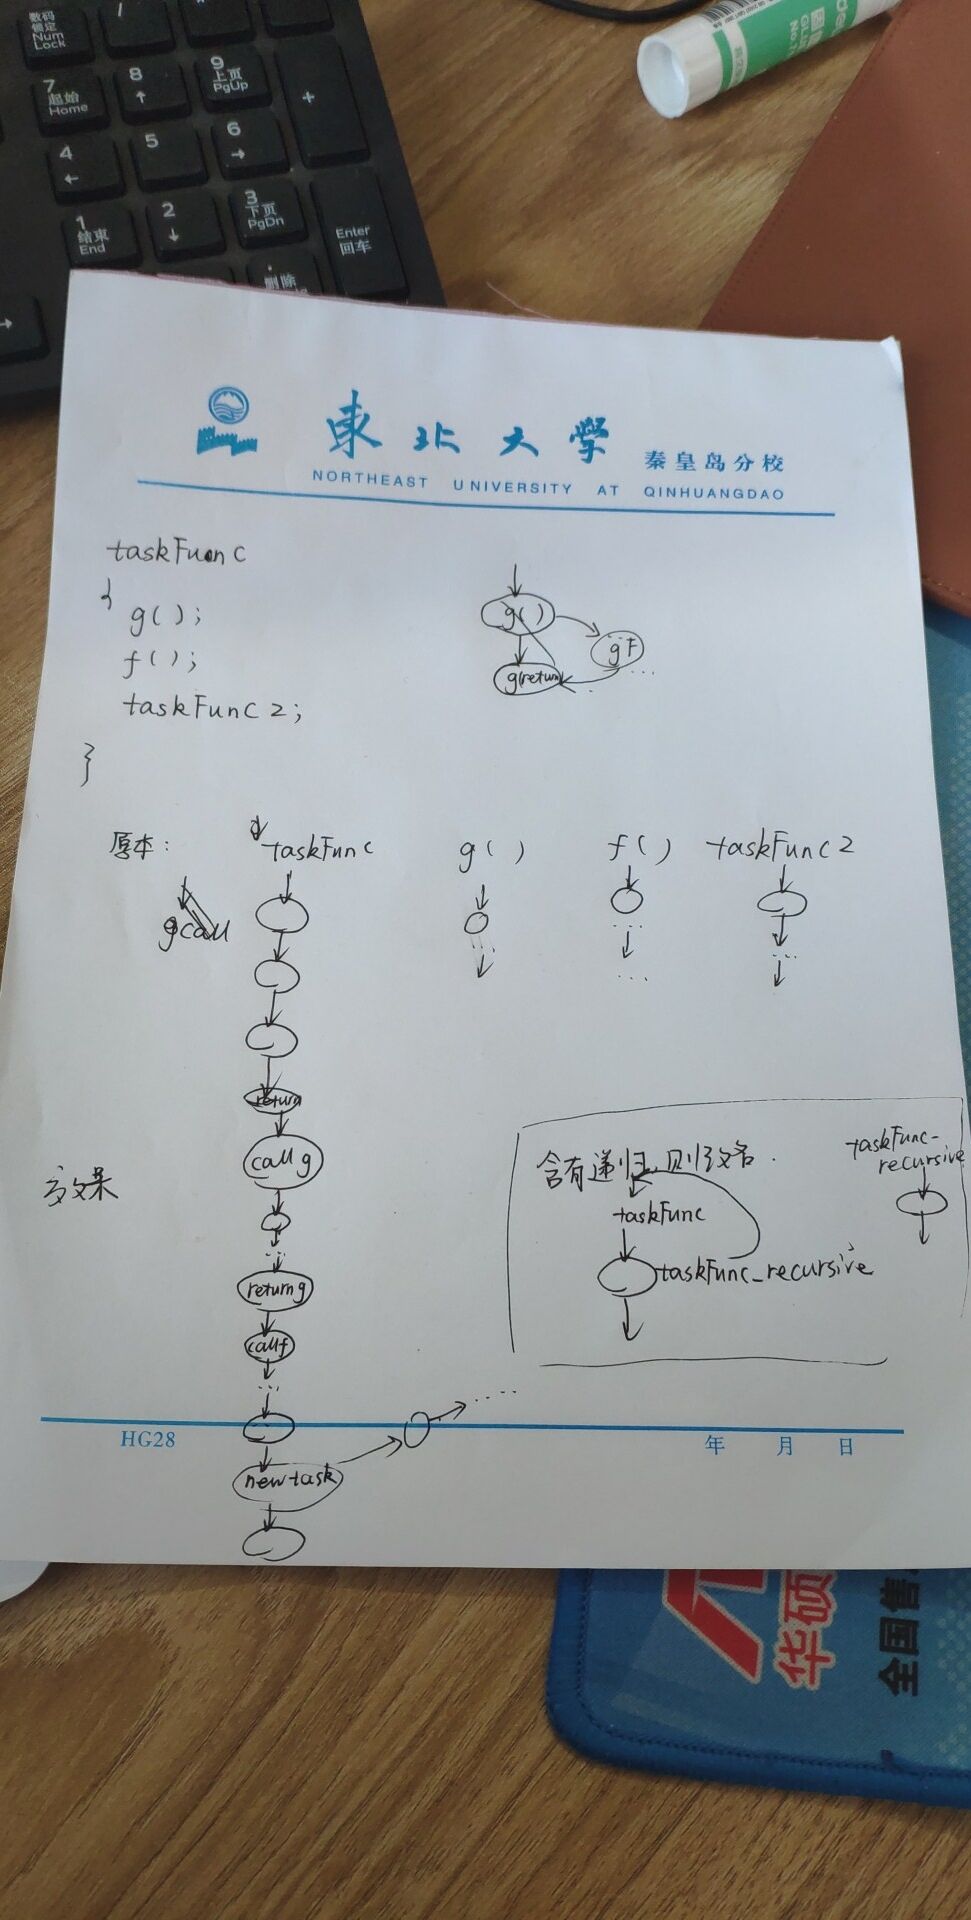 数码
锁定
Num
Lock
/
7
起始
Home
8
↑
9
上页
PgUp
+
4
←
5
6
→
1
结束
End
2
↓
3
下页
PgDn
Enter
回车
删除
東北大學
秦皇岛分校
NORTHEAST UNIVERSITY AT QINHUANGDAO
taskFunc
{
g();
f();
taskFunc2;
}
g()
gF
g(return)
...
原本:
taskFunc
g()
f()
taskFunc2
gcall
return
call g
...
return g
call f
...
new task
...
效果
含有递归,则改名.
taskFunc
taskFunc_recursive
taskFunc-
recursive
HG28
年 月 日
华硕
全国售